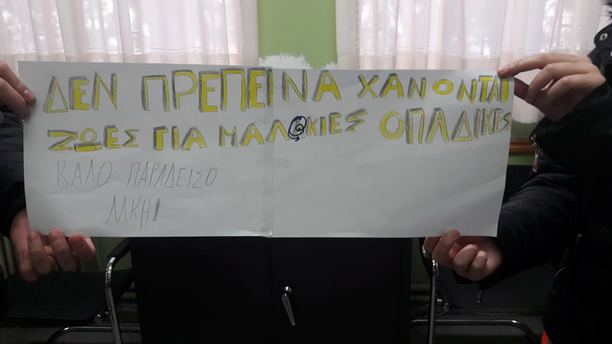 ΔΕΝ ΠΡΕΠΕΙ ΝΑ ΧΑΝΟΝΤΑΙ
ΖΩΕΣ ΓΙΑ ΜΑΛΑΚΙΕΣ ΟΠΑΔΙΚΕΣ
ΚΑΛΟ ΠΑΡΑΔΕΙΣΟ
ΑΛΚΗ